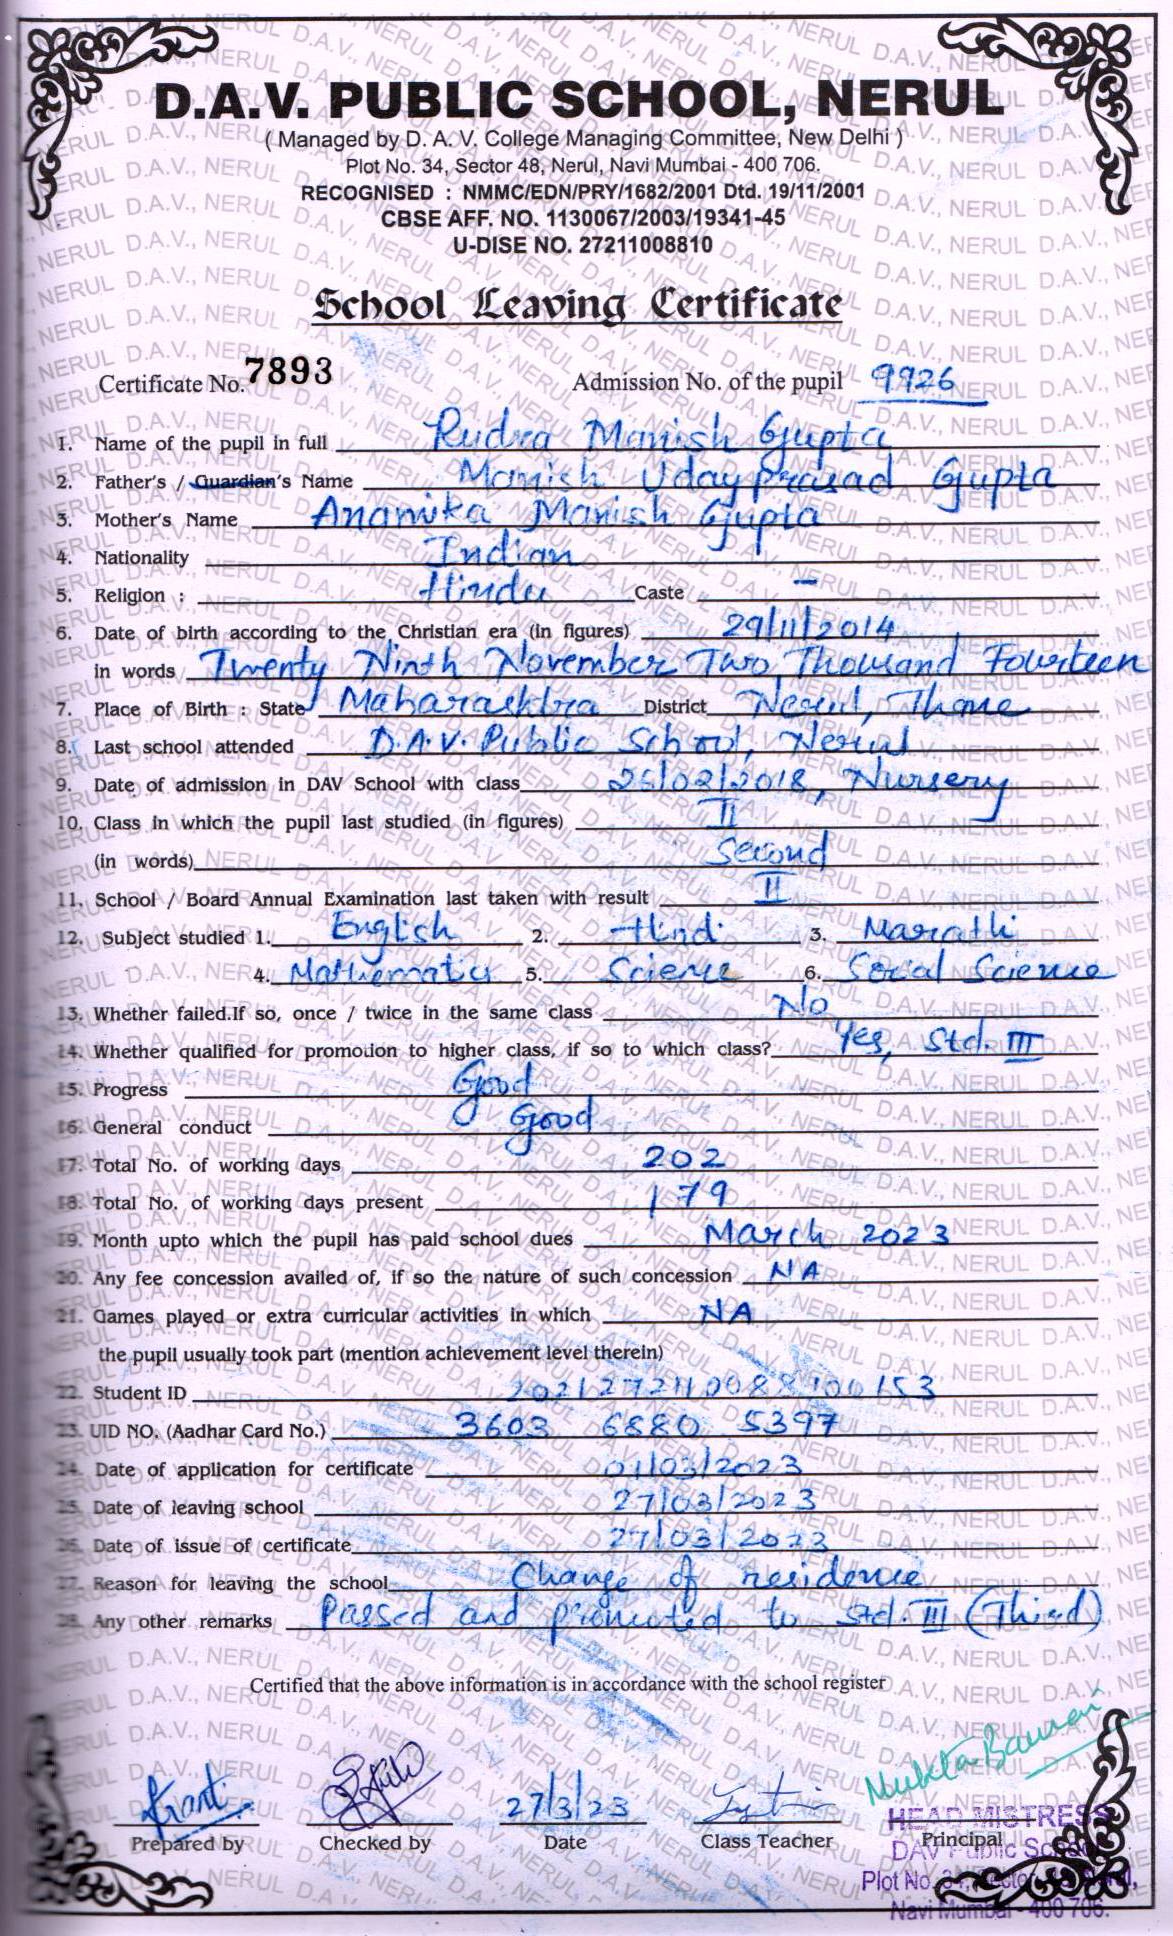 D.A.V. PUBLIC SCHOOL, NERUL
( Managed by D. A. V. College Managing Committee, New Delhi )
Plot No. 34, Sector 48, Nerul, Navi Mumbai - 400 706.
RECOGNISED : NMMC/EDN/PRY/1682/2001 Dtd. 19/11/2001
CBSE AFF. NO. 1130067/2003/19341-45
U-DISE NO. 27211008810
School Leaving Certificate
Certificate No. 7893 Admission No. of the pupil 9926
1. Name of the pupil in full Rudra Manish Gupta
2. Father's / Guardian's Name Manish Udayprasad Gupta
3. Mother's Name Anamika Manish Gupta
4. Nationality Indian
5. Religion : Hindu Caste –
6. Date of birth according to the Christian era (in figures) 29/11/2014
in words Twenty Ninth November Two Thousand Fourteen
7. Place of Birth : State Maharashtra District Nerul, Thane
8. Last school attended D.A.V. Public School, Nerul
9. Date of admission in DAV School with class Nursery
10. Class in which the pupil last studied (in figures) II
(in words) Second
11. School / Board Annual Examination last taken with result II
12. Subject studied 1. English 2. Hindi 3. Marathi
4. Mathematics 5. Science 6. Social Science
13. Whether failed.If so, once / twice in the same class No
14. Whether qualified for promotion to higher class, if so to which class? Yes, Std. III
15. Progress Good
16. General conduct Good
17. Total No. of working days 202
18. Total No. of working days present 179
19. Month upto which the pupil has paid school dues March 2023
20. Any fee concession availed of, if so the nature of such concession NA
21. Games played or extra curricular activities in which NA
the pupil usually took part (mention achievement level therein)
22. Student ID
23. UID NO. (Aadhar Card No.) 3603 6880 5397
24. Date of application for certificate 01/03/2023
25. Date of leaving school 27/03/2023
26. Date of issue of certificate 27/03/2023
27. Reason for leaving the school Change of residence
28. Any other remarks Passed and promoted to Std. III (Third)
Certified that the above information is in accordance with the school register
27/3/23
Prepared by Checked by Date Class Teacher Principal
HEAD MISTRESS
DAV Public School
Plot No. 34,
Navi Mumbai - 400 706.